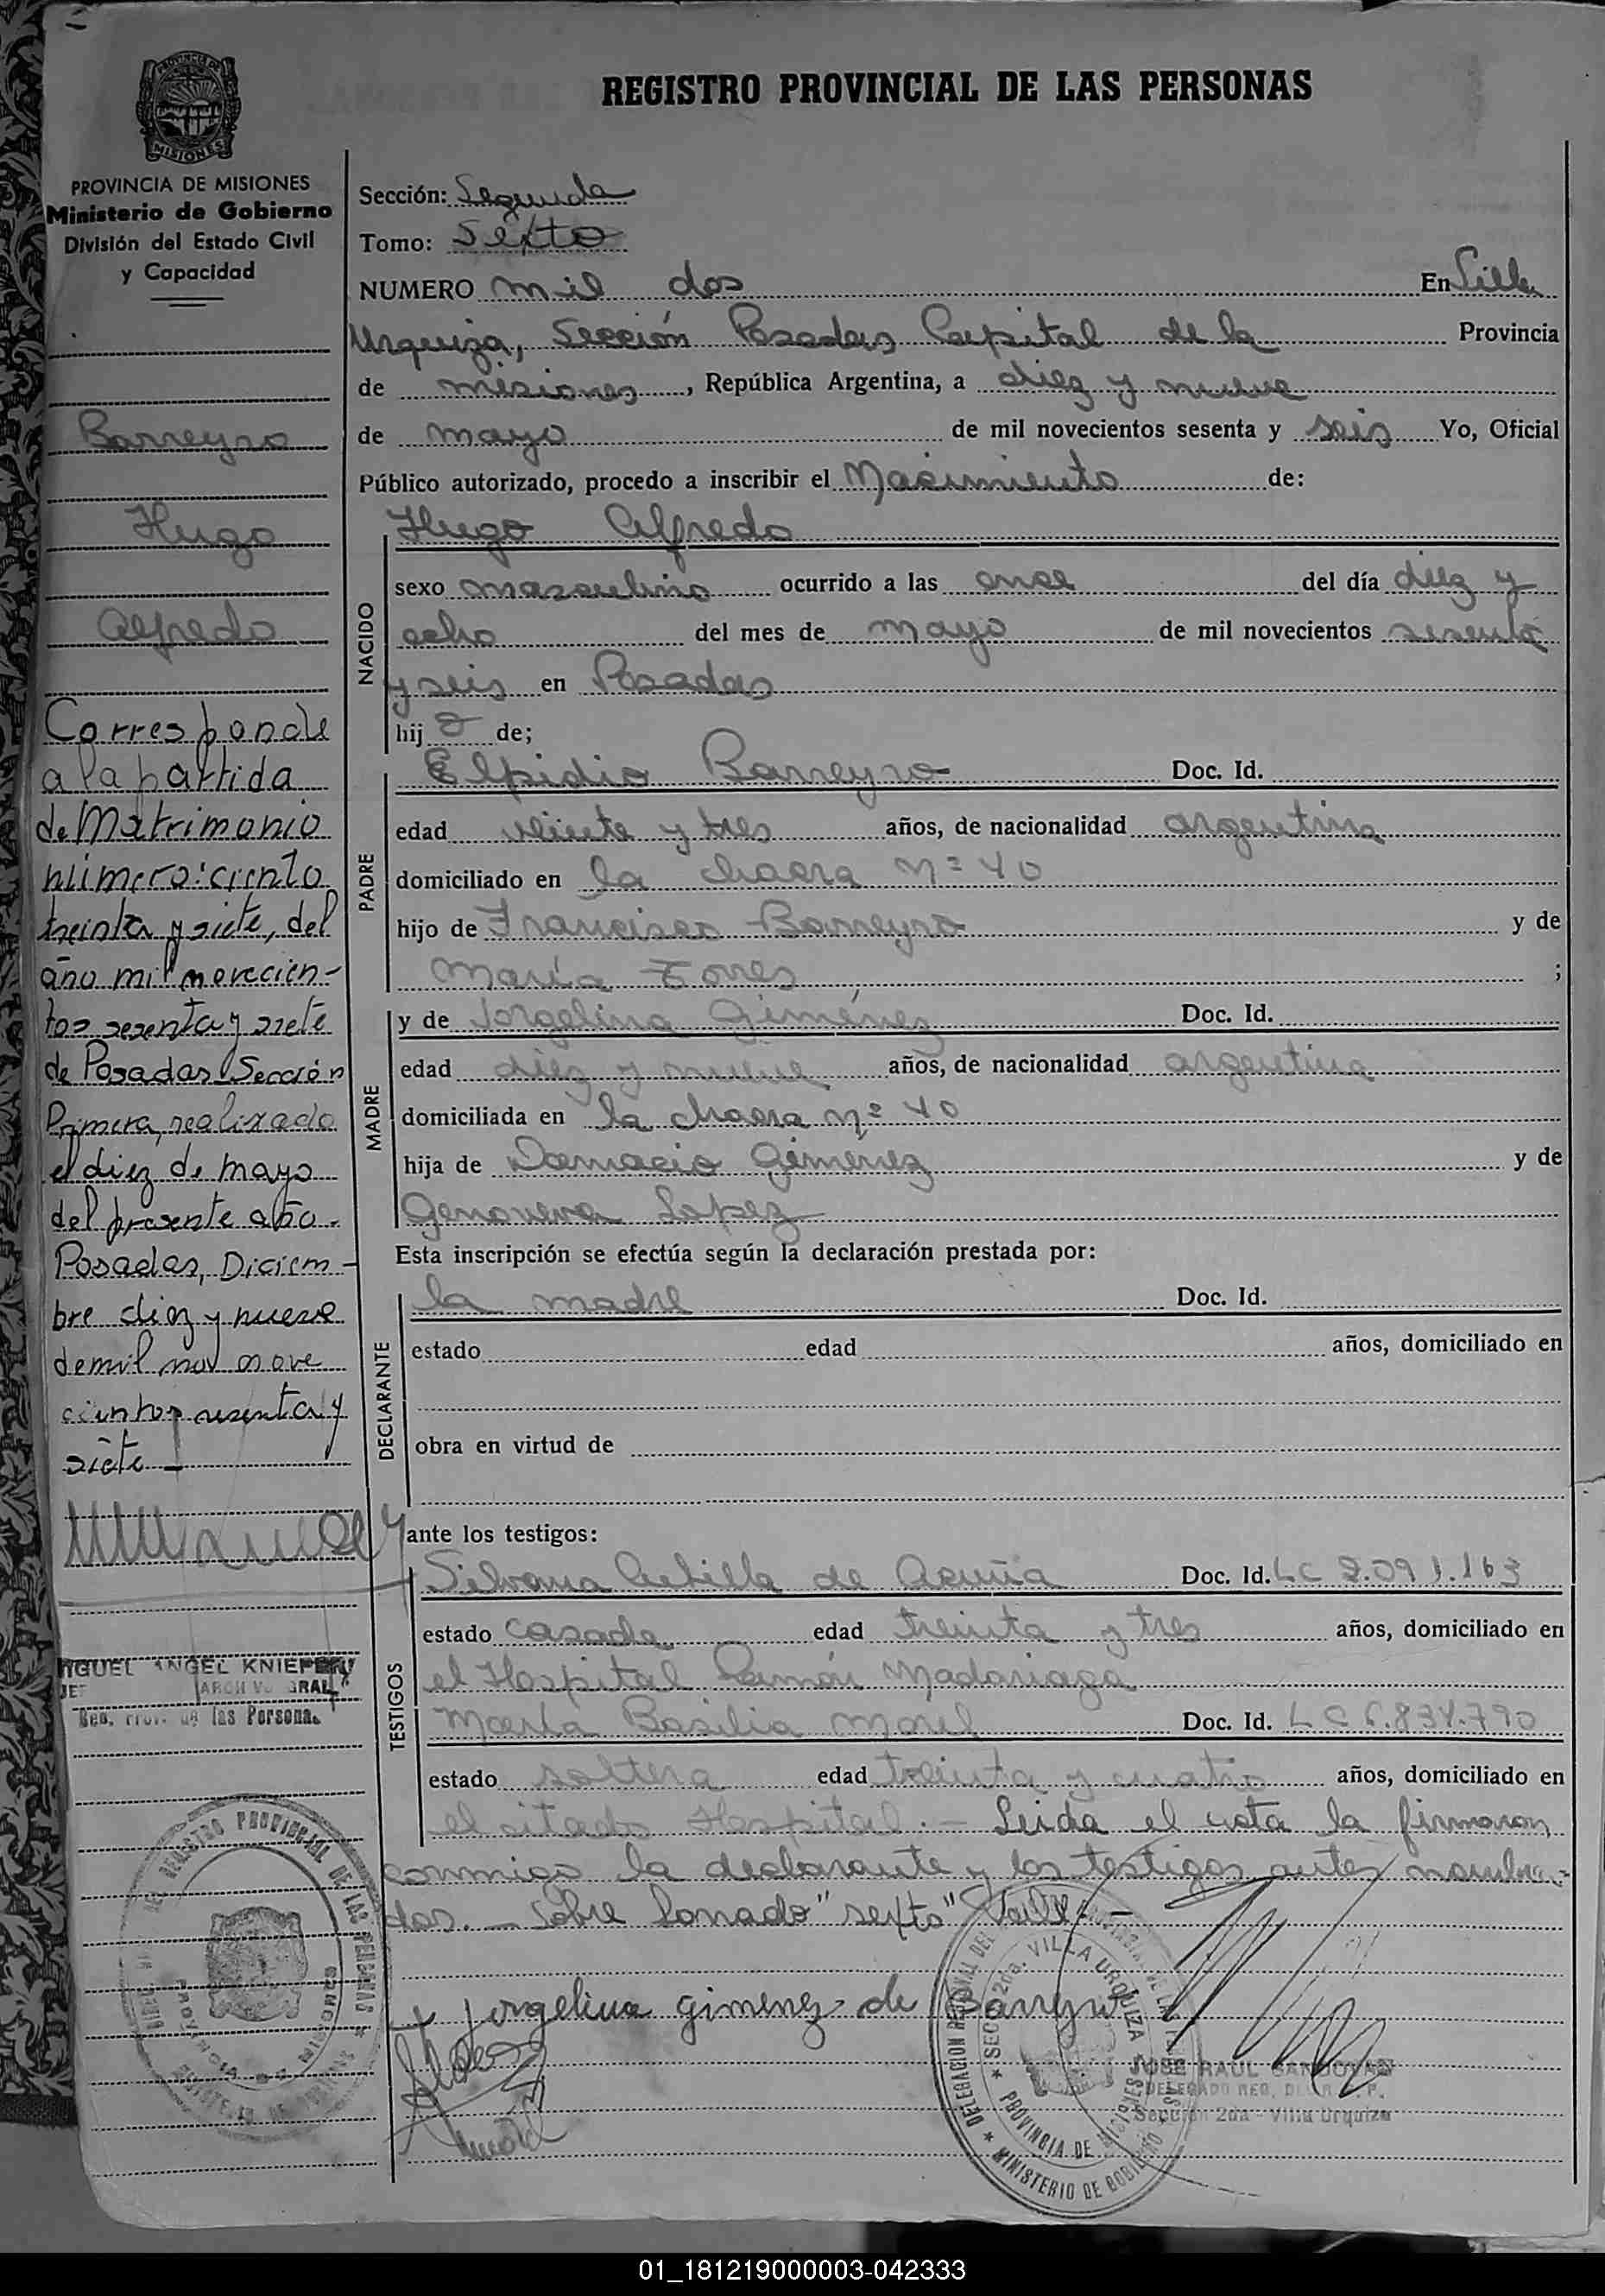 REGISTRO PROVINCIAL DE LAS PERSONAS
MISIONES
PROVINCIA DE MISIONES
Ministerio de Gobierno
División del Estado Civil
y Capacidad
Barreyro
Hugo
Alfredo
Corresponde
a la partida
de Matrimonio
número: ciento
treinta y siete, del
año mil novecien-
tos sesenta y siete
de Posadas Sección
Primera, realizado
el diez de mayo
del presente año.
Posadas, Diciem-
bre diez y nueve
de mil nov nove
cientos sesenta y
siete
MIGUEL ANGEL KNIEPERT
Reg. Prov. de las Personas
Sección: Segunda
Tomo: Sexto
NUMERO mil dos En Villa
Urquiza, Sección Posadas Capital de la Provincia
de misiones, República Argentina, a diez y nueve
de mayo de mil novecientos sesenta y seis Yo, Oficial
Público autorizado, procedo a inscribir el Nacimiento de:
NACIDO
Hugo Alfredo
sexo masculino ocurrido a las once del día diez y
ocho del mes de mayo de mil novecientos sesenta
y seis en Posadas
hij o de;
PADRE
Elpidio Barreyro Doc. Id.
edad veinte y tres años, de nacionalidad argentina
domiciliado en la chacra Nº 40
hijo de Francisco Barreyro y de
María Torres ;
MADRE
y de Jorgelina Giménez Doc. Id.
edad diez y nueve años, de nacionalidad argentina
domiciliada en la chacra Nº 40
hija de Damacio Gimenez y de
Genoveva Lopez
Esta inscripción se efectúa según la declaración prestada por:
DECLARANTE
la madre Doc. Id.
estado edad años, domiciliado en
obra en virtud de
ante los testigos:
TESTIGOS
Silvana de Acuña Doc. Id. LC 2.091.163
estado casada edad treinta y tres años, domiciliado en
el Hospital Ramón Madariaga
María Basilia Morel Doc. Id. LC 6.834.790
estado soltera edad treinta y cuatro años, domiciliado en
el citado Hospital.- Leida el acta la firmaron
conmigo la declarante y los testigos antes nombra-
dos. - Sobre borrado "sexto" Vale -
Jorgelina gimenez de Barreyro
JOSE RAUL SANDOVAL
Sección 2da - Villa Urquiza
DELEGACION REGIONAL DEL
SEC. 2da. VILLA URQUIZA
PROVINCIA DE MISIONES
MINISTERIO DE GOBIERNO
REGISTRO PROVINCIAL DE LAS PERSONAS
01_181219000003-042333